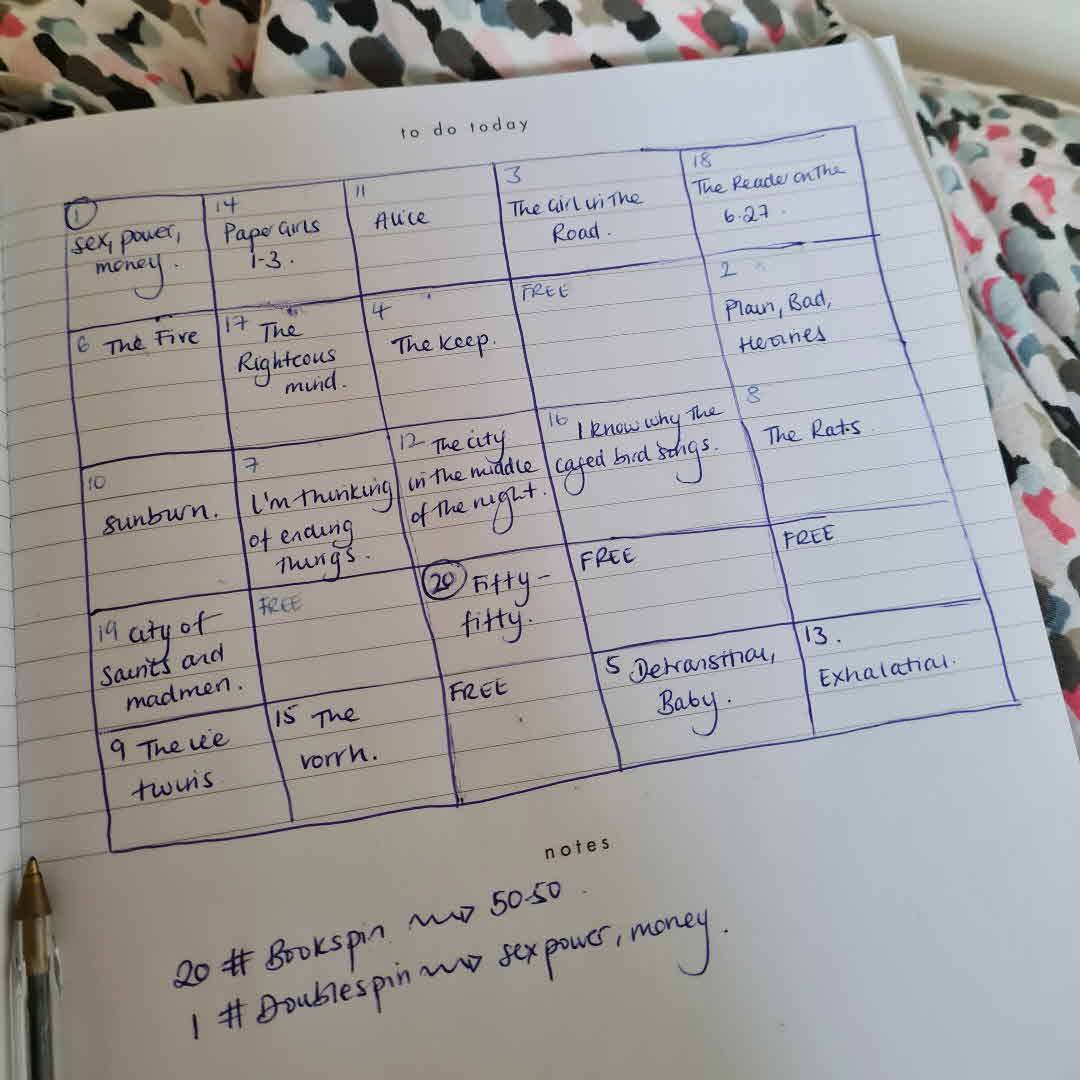 to do today
1
sex, power,
money.
14
Paper Girls
1-3.
11
Alice
3
The Girl in the
Road.
18
The Reader on the
6.27.
6 The Five
17 The
Righteous
mind.
4
The Keep.
FREE
2
Plain, Bad,
Heroines
10
sunburn.
7
I'm thinking
of ending
things.
12 The city
in the middle
of the night.
16 I know why the
caged bird songs.
8
The Rats.
19 city of
saints and
madmen.
FREE
20 Fifty-
fifty.
FREE
FREE
9 The ice
twins
15 The
vorrh.
FREE
5 Detransition,
Baby.
13.
Exhalation.
notes
20 # Bookspin → 50-50.
1 # Doublespin → sex power, money.